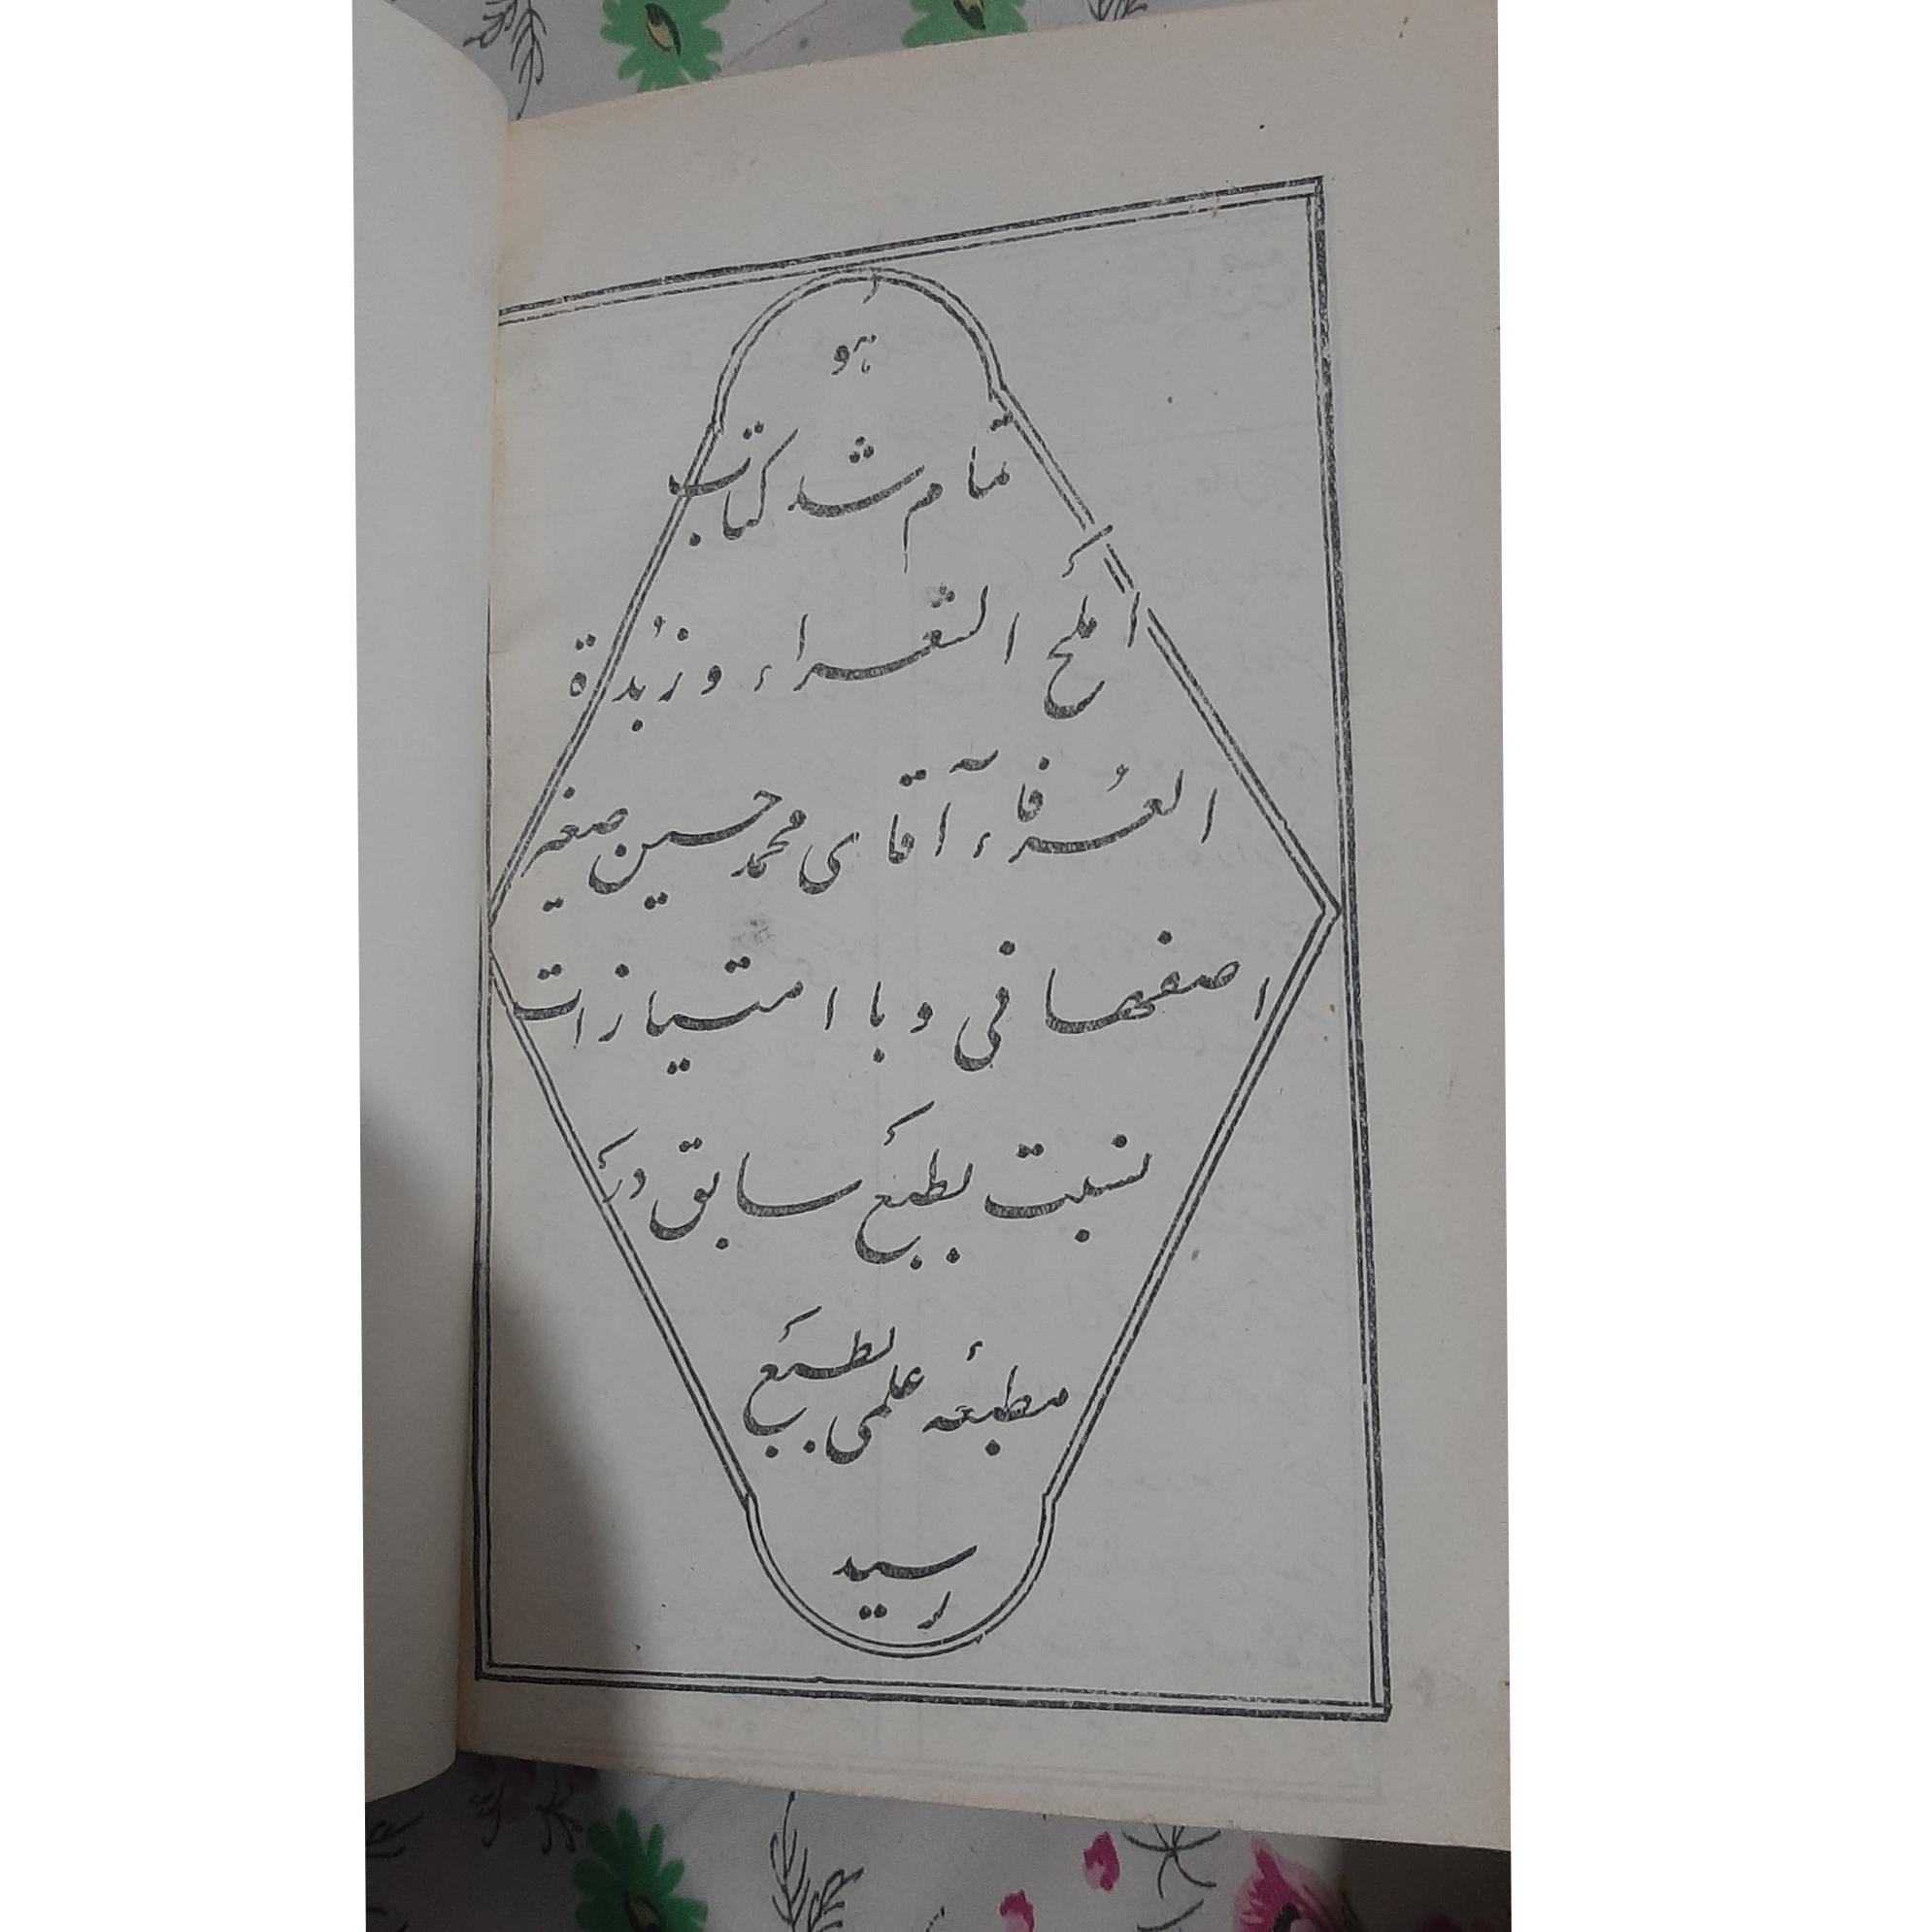 هو
تمام شد کتاب
املح الشعراء و زُبدة
العُرفاء آقای محمد حسین صغیر
اصفهانی و با امتیازات
نسبت بطبع سابق در
مطبعهٔ علمی بطبع
رسید